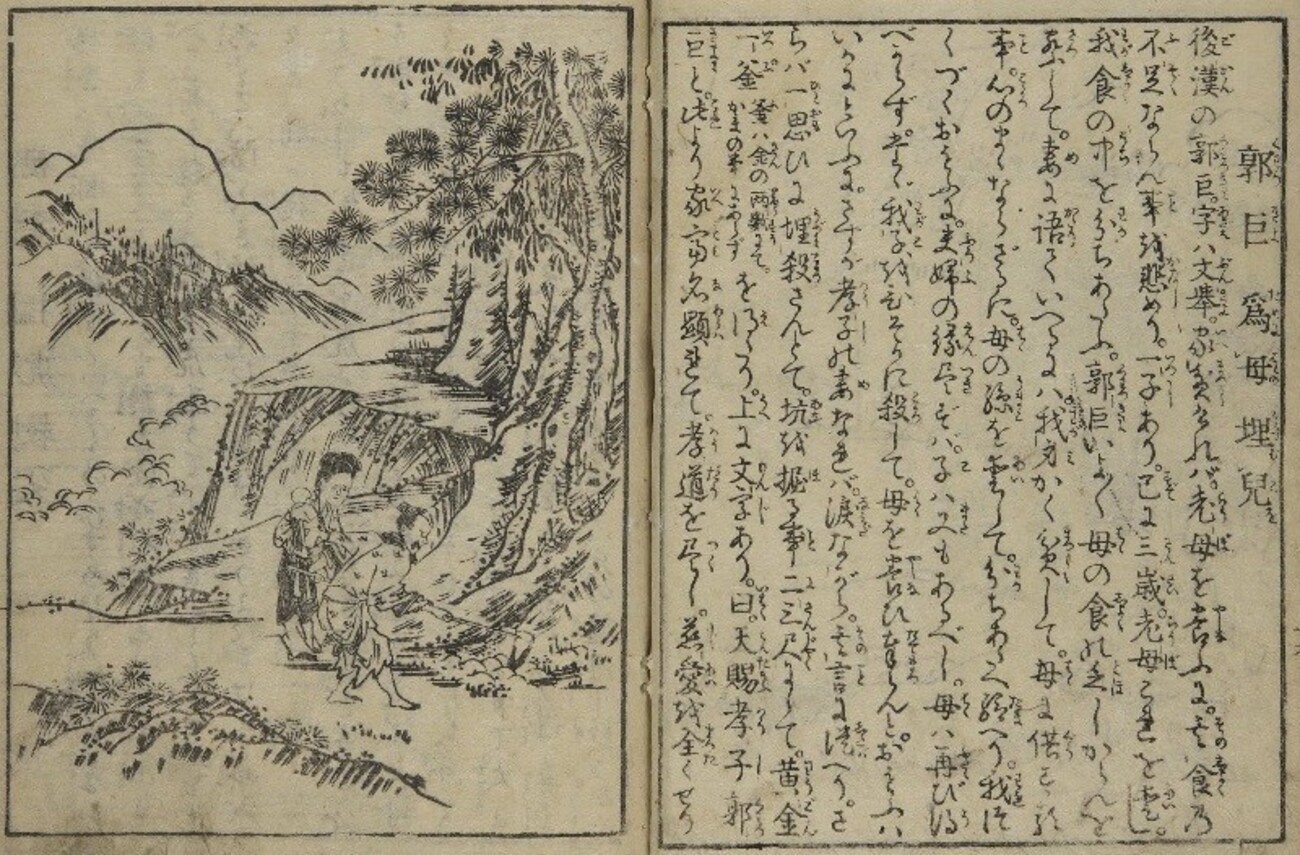 郭巨 爲母埋兒
後漢の郭巨。字ハ文舉。家貧けれバ。老母を養ふに。其食乃
不足ならん事を悲めり。一子あり。已に三歳。老母これを愛し。
我食の中を分ちあたふ。郭巨いよ〱母の食の乏しからんを
して。妻に語ていへるにハ。我身かく貧くして。母に供する
事。心のまゝならざるに。母の孫を愛して。分ちあたへ給へり。我つ
く〲おもふに。夫婦の縁尽ずバ。子ハ又もあるべし。母ハ再び得
べからず。我子をひそかに殺して。母を養ひ奉らんとおもふハ
いかにといふに。さすが孝子の妻なれバ。涙ながら。其言に従へり。さ
らバ一思ひに埋殺さんとて。坑を掘る事二三尺にして。黄金
一釜 釜ハ金の両数にて。かまの事にあらず を得たり。上に文字あり。曰。天賜孝子郭
巨と。此より家富名顕れて。孝道を尽し。慈愛を全くせり